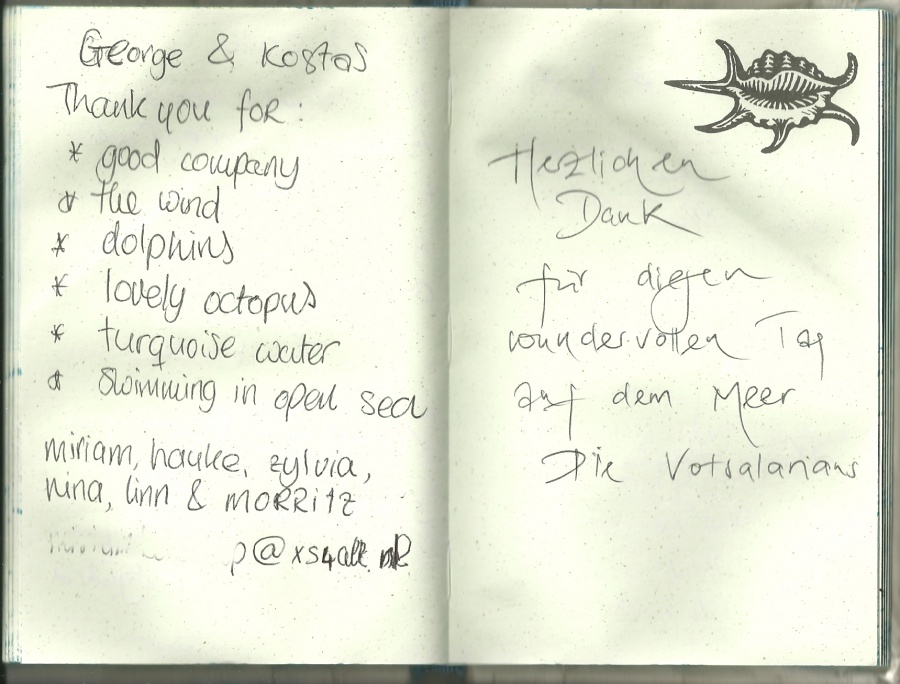 George & Kostas
Thank you for:
* good company
* the wind
* dolphins
* lovely octopus
* turquoise water
* swimming in open sea
miriam, hauke, zylvia,
nina, linn & MORRITZ
p@xs4all.nl
Herzlichen
Dank
für diesen
wundervollen Tag
auf dem Meer
Die Votsalarians